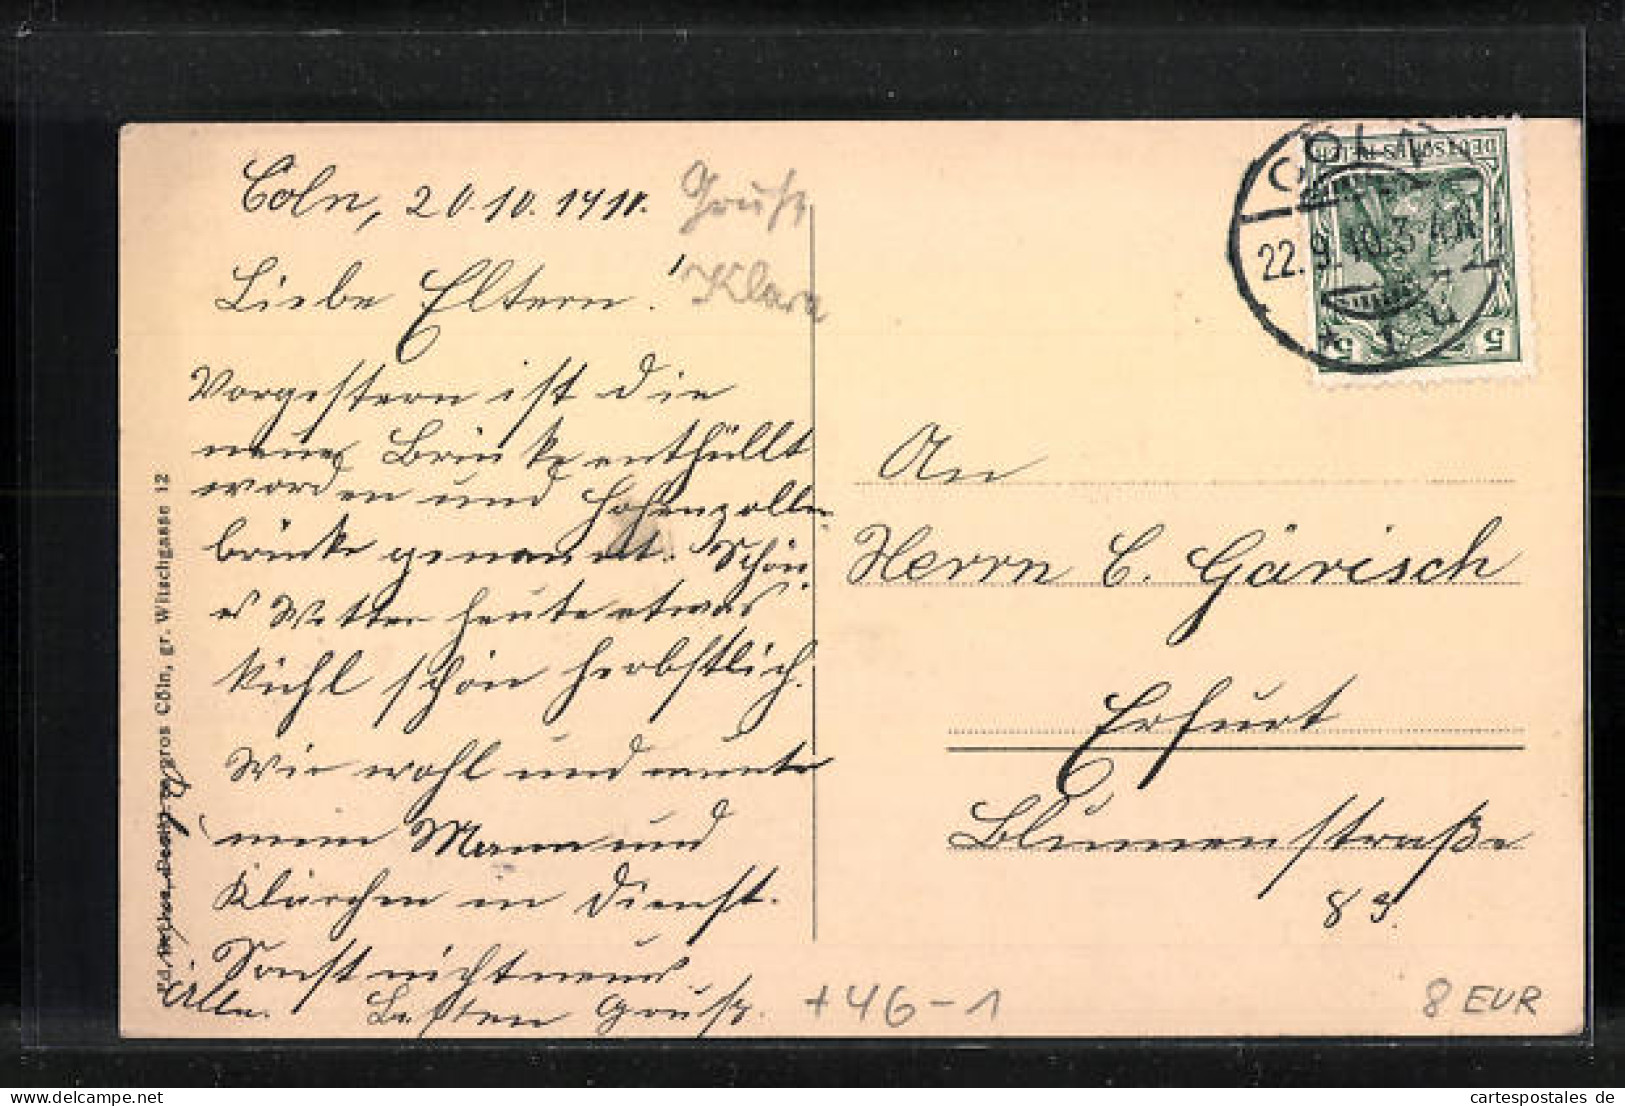 Cöln, 20.10.1910.
Liebe Eltern!
Gruß
Klara
Vorgestern ist die
neue Brücke enthüllt
worden und Hohenzollern
brücke genannt. Schön
es Wetter heute etwas
kühl schön herbstlich.
Wir wohl und munter
mein Mann und
Klärchen im Dienst.
Sonst nichts neues.
Besten Gruß.
An
Herrn C. Gärisch
Erfurt
Blumenstraße
83.
CÖLN
22.9.10.3-4N.
* 1 u
DEUTSCHES REICH
5 5
en gros Cöln, gr. Witschgasse 12
+46-1
8 EUR
www.delcampe.net
cartespostales de